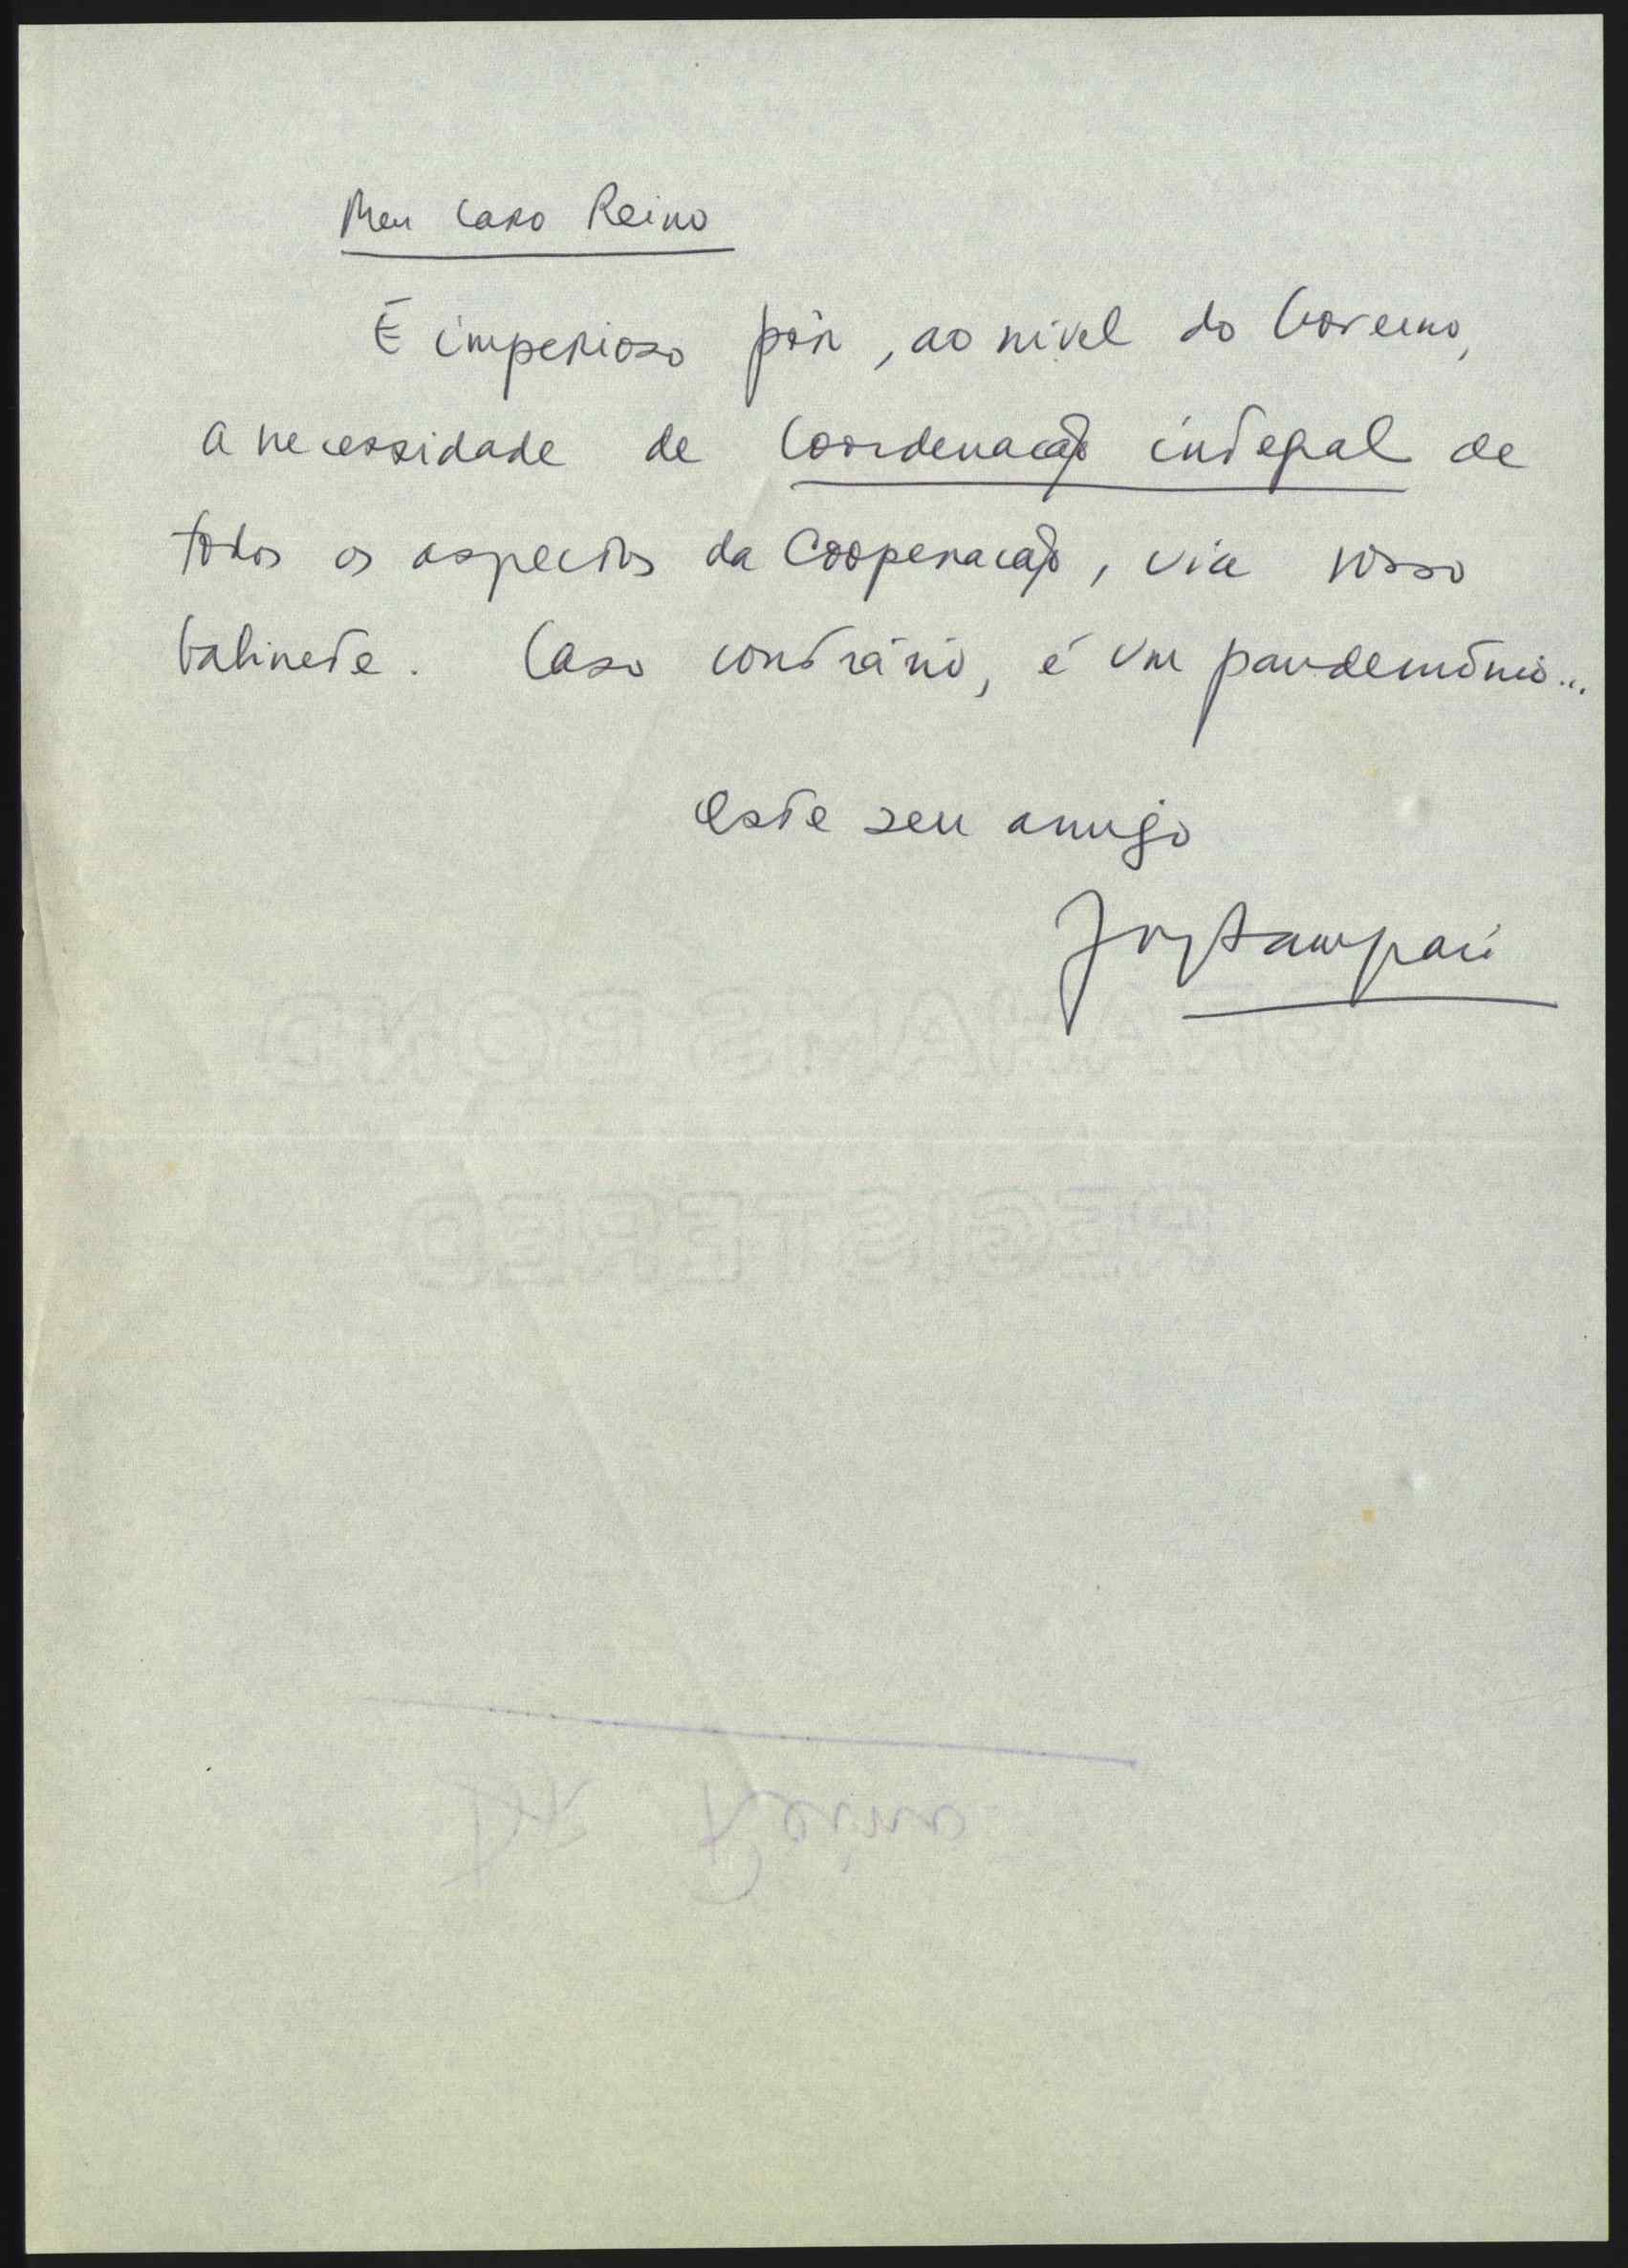 Meu caro Reino
É imperioso pôr, ao nível do Governo,
a necessidade de coordenação integral de
todos os aspectos da Cooperação, via vosso
Gabinete. Caso contrário, é um pandemónio...
este seu amigo
REGISTERED
Reino